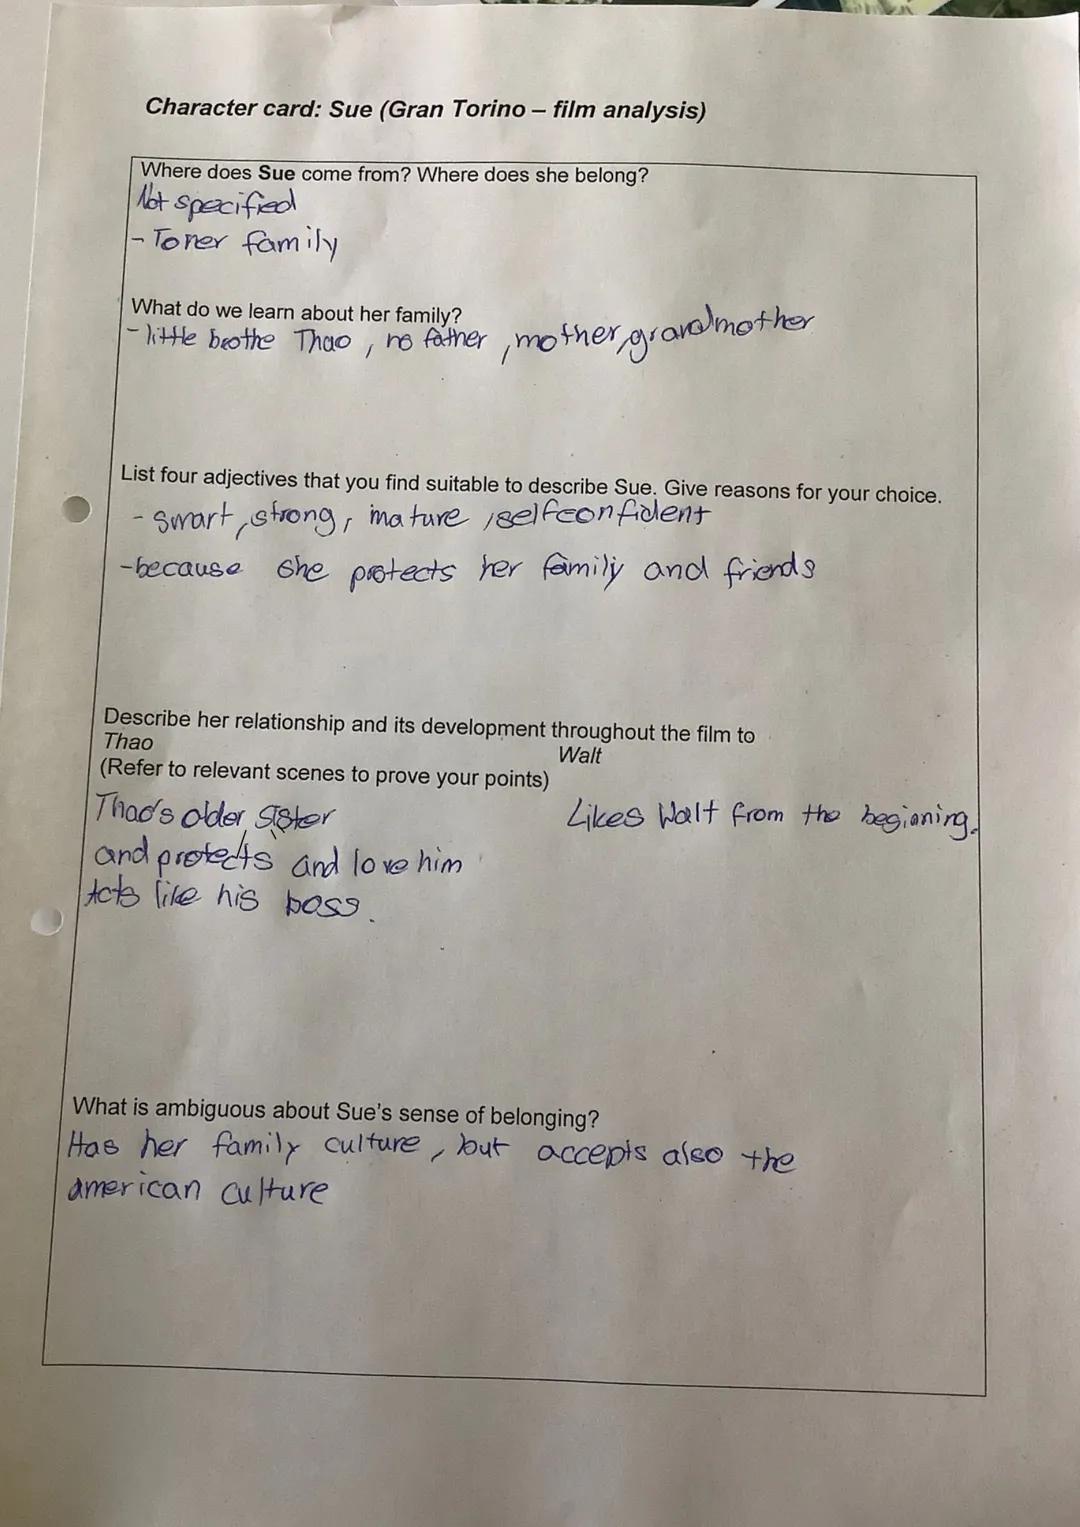 Character card: Sue (Gran Torino – film analysis)
Where does Sue come from? Where does she belong?
Not specified
- Toner family
What do we learn about her family?
- little brothe Thao, no father, mother, grandmother
List four adjectives that you find suitable to describe Sue. Give reasons for your choice.
- smart, strong, mature, selfconfident
-because she protects her family and friends
Describe her relationship and its development throughout the film to
Thao Walt
(Refer to relevant scenes to prove your points)
Thao's older sister Likes Walt from the begining.
and protects and love him
Acts like his boss.
What is ambiguous about Sue's sense of belonging?
Has her family culture, but accepts also the
american culture